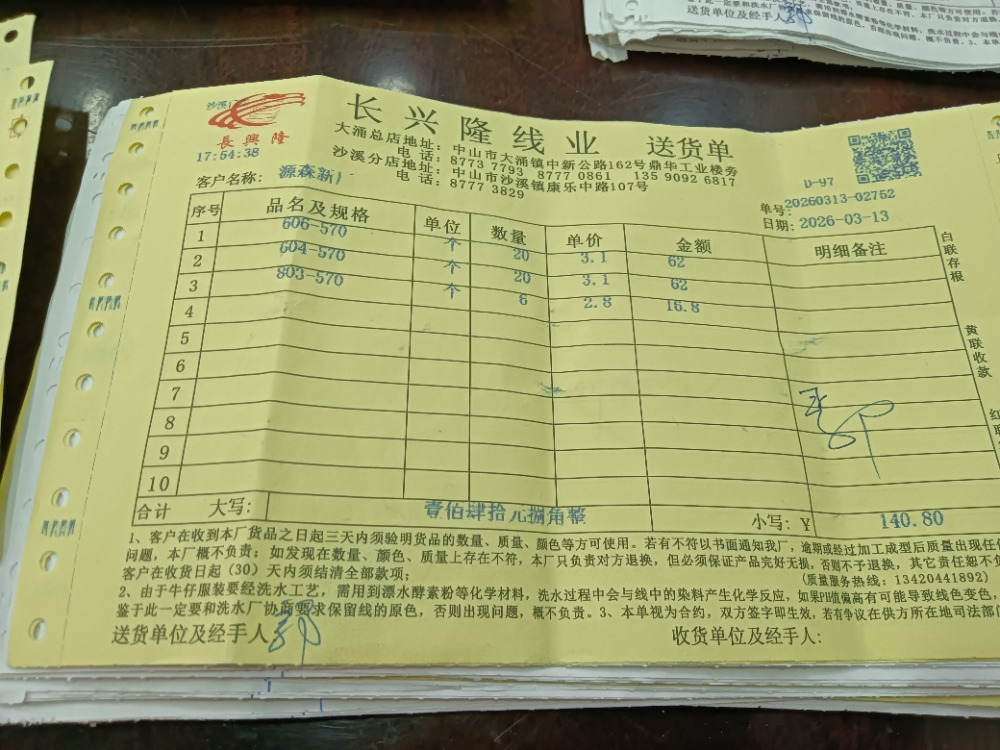 送货单位及经手人
沙溪
長興隆
17:54:38
长兴隆线业 送货单
大涌总店地址：中山市大涌镇中新公路162号鼎华工业楼旁
电话：8773 7793 8777 0861 135 9092 6817
沙溪分店地址：中山市沙溪镇康乐中路107号
电话：8777 3829
D-97
客户名称：源森新厂
单号：20260313-02752
日期：2026-03-13
序号 品名及规格 单位 数量 单价 金额 明细备注
1 606-570 个 20 3.1 62
2 604-570 个 20 3.1 62
3 803-570 个 6 2.8 16.8
4
5
6
7
8
9
10
合计 大写：壹佰肆拾元捌角整 小写：￥ 140.80
白联存根
黄联收款
红联
1、客户在收到本厂货品之日起三天内须验明货品的数量、质量、颜色等方可使用。若有不符以书面通知我厂，逾期或经过加工成型后质量出现任何
问题，本厂概不负责；如发现在数量、颜色、质量上存在不符，本厂只负责对方退换，但必须保证产品完好无损，否则不予退换，其它责任恕不负
客户在收货日起（30）天内须结清全部款项；
（质量服务热线：13420441892）
2、由于牛仔服装要经洗水工艺，需用到漂水酵素粉等化学材料，洗水过程中会与线中的染料产生化学反应，如果PH值偏高有可能导致线色变色，
鉴于此一定要和洗水厂协商要求保留线的原色，否则出现问题，概不负责。3、本单视为合约，双方签字即生效，若有争议在供方所在地司法部门
送货单位及经手人
收货单位及经手人：